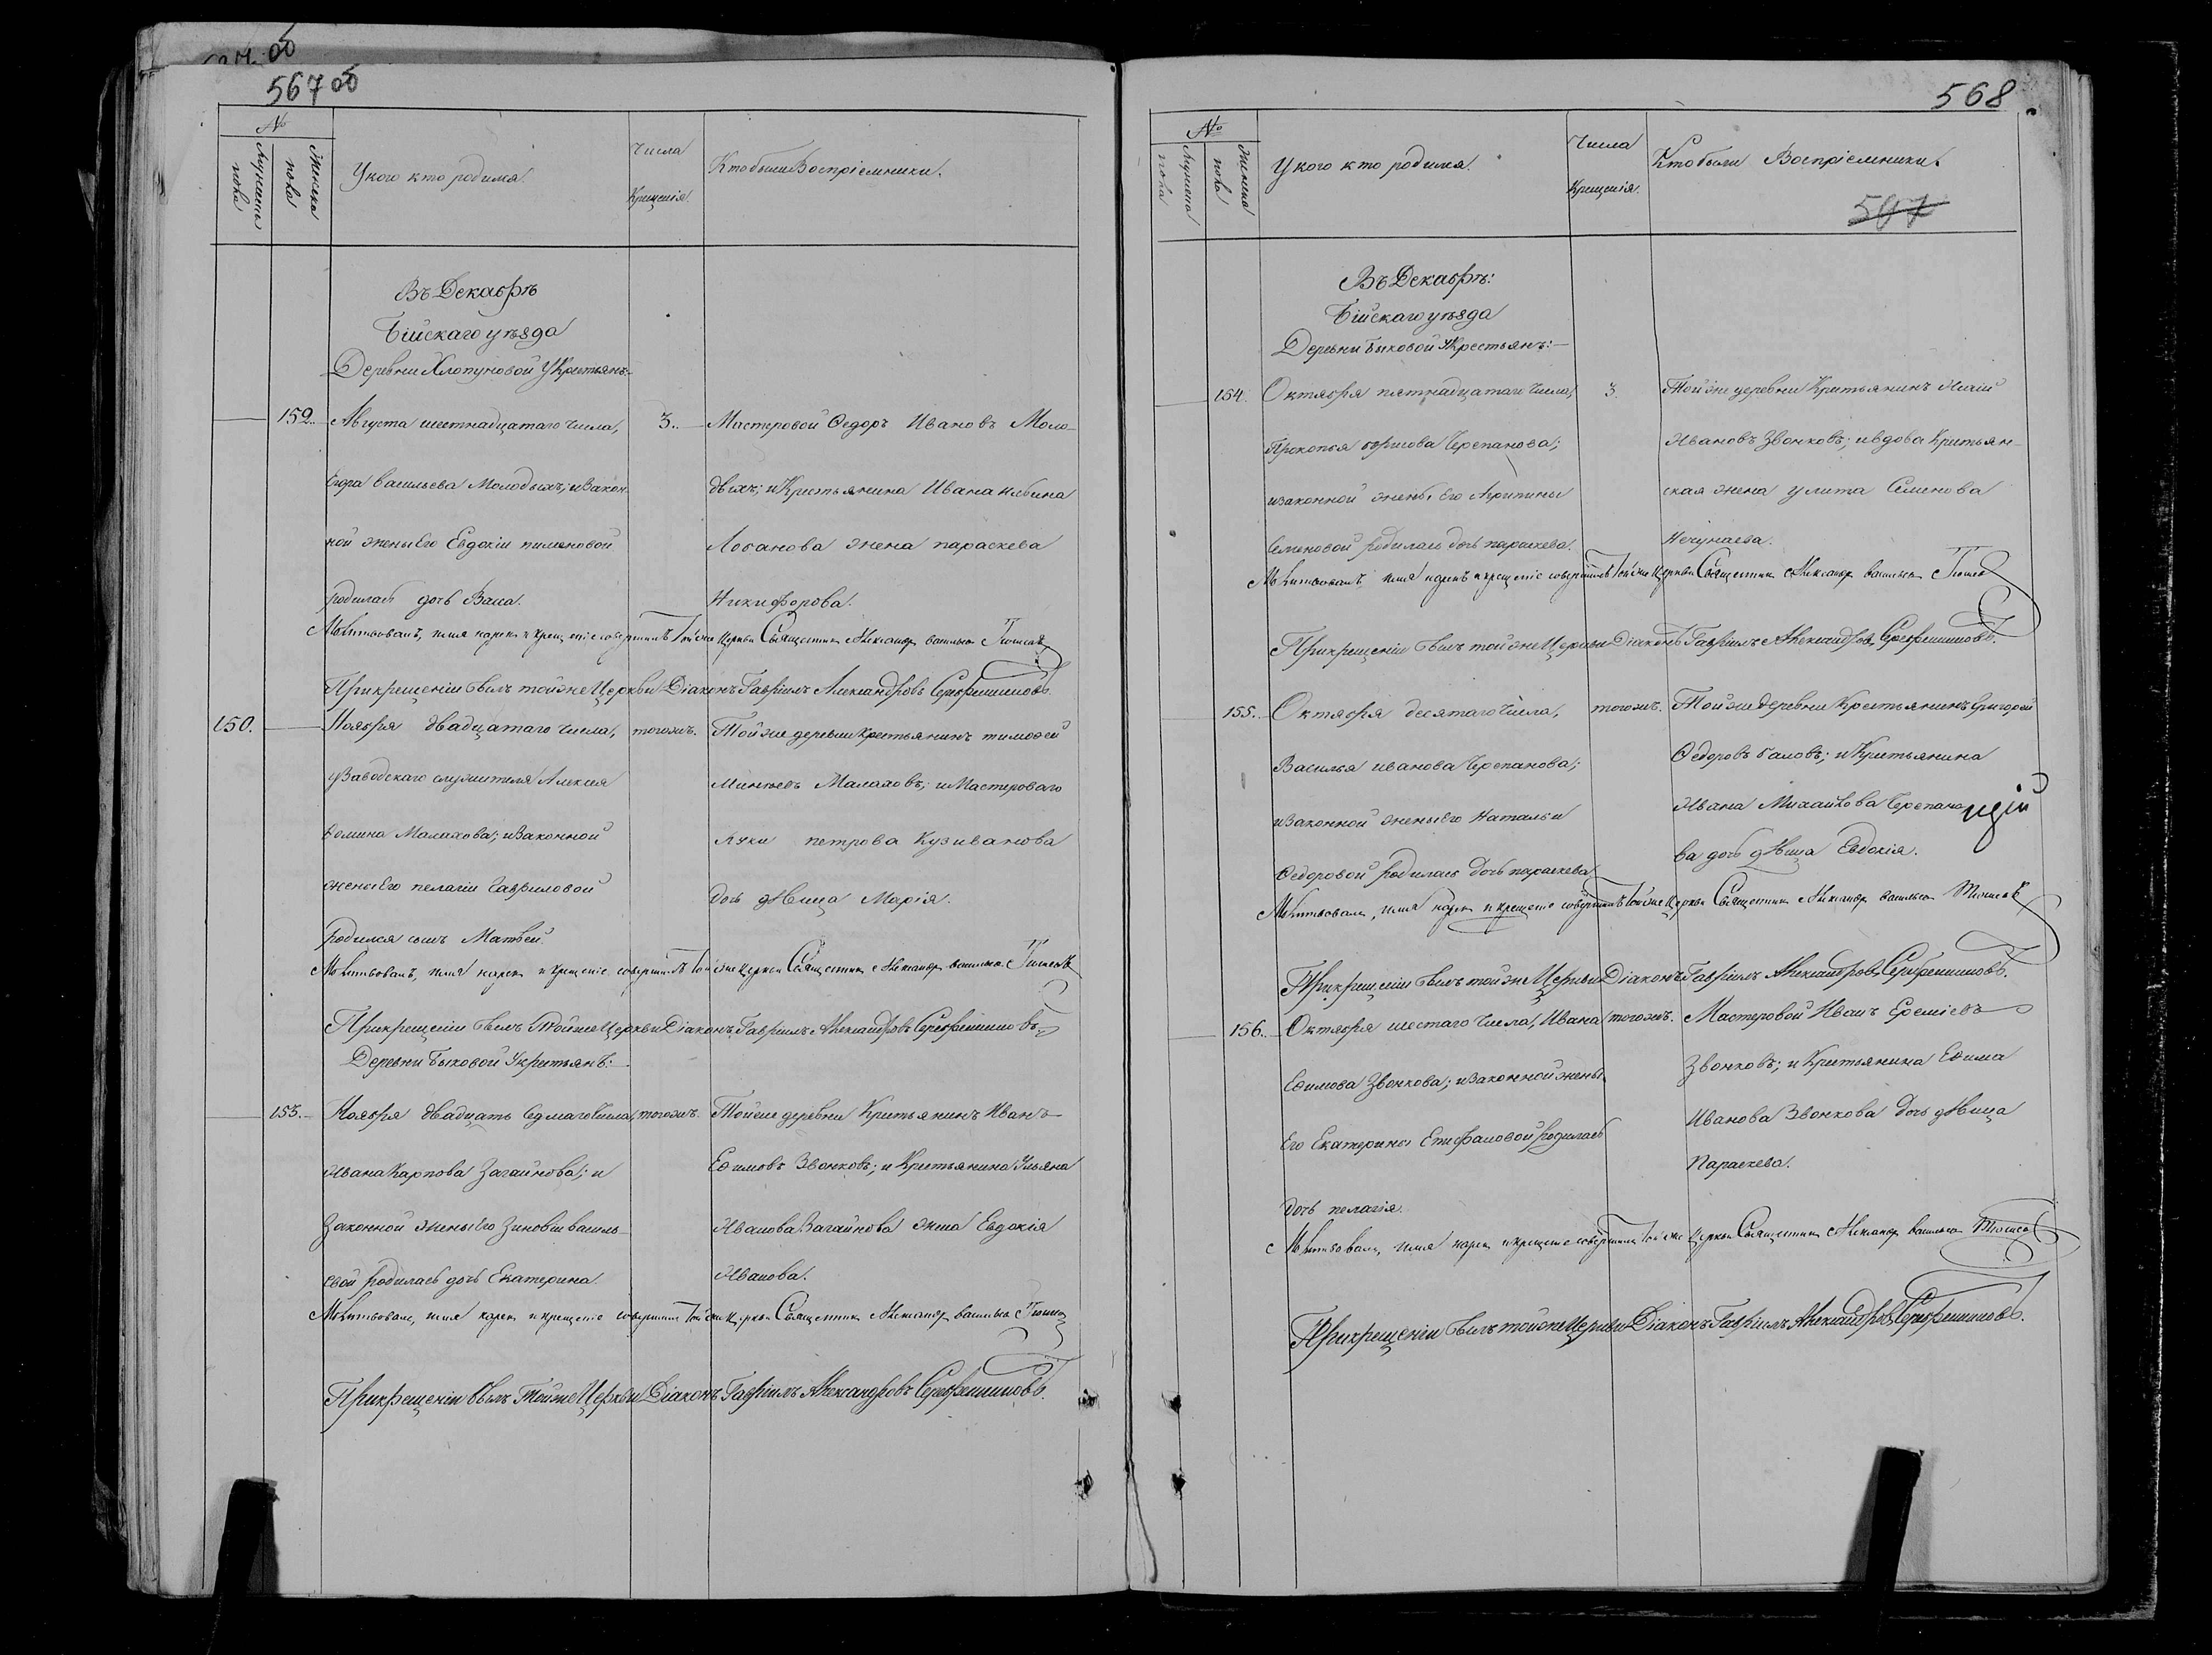 567 об
№
Мужеска пола
Женска пола
У кого кто родился.
Числа Крещенія.
Кто были Воспріемники.
Въ Декабрѣ
Бійскаго уѣзда
Деревни Хлопуновой У Крестьянъ
152. Августа шестнадцатаго числа, 3. Мастеровой Ѳедоръ Ивановъ Моло-
Егора Васильева Молодыхъ; и закон- дыхъ; и Крестьянина Ивана
ной жены Его Евдокіи пименовой Лобанова жена параскева
родилась дочь Васса. Никифорова.
Молитвовалъ, имя нарекъ и крещеніе совершилъ Той же Церкви Священникъ Александръ Васильевъ
При крещеніи былъ той же Церкви Діаконъ Гавріилъ Александровъ Серебрениковъ.
150. Ноября двадцатаго числа, тогожъ. Той же деревни крестьянинъ тимофей
у Заводскаго служителя Алексея Малаховъ; и Мастероваго
Фомина Малахова; и Законной Луки петрова Кузиванова
жены Его пелагіи Гавриловой дочь дѣвица Марія.
родился сынъ Матвей.
Молитвовалъ, имя нарекъ и крещеніе совершилъ Той же Церкви Священникъ Александръ Васильевъ
При крещеніи былъ Той же Церкви Діаконъ Гавріилъ Александровъ Серебрениковъ.
Деревни Быковой У крестьянъ:
153. Ноября двадцать седмаго числа, тогожъ. Той же деревни Крестьянинъ Иванъ
Ивана Карпова Загайнова; и Ефимовъ Звонковъ; и Крестьянина Ульяна
Законной жены Его Зиновіи василь- Иванова Загайнова жена Евдокія
евой родилась дочь Екатерина. Иванова.
Молитвовалъ, имя нарекъ и крещеніе совершилъ Той же Церкви Священникъ Александръ Васильевъ
При крещеніи былъ Той же Церкви Діаконъ Гавріилъ Александровъ Серебрениковъ.
568
№
Мужеска пола
Женска пола
У кого кто родился.
Числа Крещенія.
Кто были Воспріемники.
Въ Декабрѣ:
Бійскаго уѣзда
Деревни Быковой У Крестьянъ:
154. Октября пятнадцатаго числа, 3. Той же деревни Крестьянинъ
Прокопья Черепанова; Ивановъ Звонковъ; и вдова Крестьян-
и законной жены Его Агрипины ская жена улита Семенова
Семеновой родилась дочь параскева. Нечунаева.
Молитвовалъ, имя нарекъ и крещеніе совершилъ Той же Церкви Священникъ Александръ Васильевъ
При крещеніи былъ той же Церкви Діаконъ Гавріилъ Александровъ Серебрениковъ.
155. Октября десятаго числа, тогожъ. Той же деревни Крестьянинъ Григорей
Василья иванова Черепанова; Ѳедоровъ баловъ; и Крестьянина
и Законной жены Его Натальи Ивана Михайлова Черепано-
Ѳедоровой родилась дочь параскева. ва дочь дѣвица Евдокія.
Молитвовалъ, имя нарекъ и крещеніе совершилъ Той же Церкви Священникъ Александръ Васильевъ
При крещеніи былъ той же Церкви Діаконъ Гавріилъ Александровъ Серебрениковъ.
156. Октября шестаго числа, Ивана тогожъ. Мастеровой Иванъ Еремѣевъ
Ефимова Звонкова; и Законной жены Звонковъ; и Крестьянина Ефима
Его Екатерины Епифановой родилась Иванова Звонкова дочь дѣвица
дочь пелагія. Параскева.
Молитвовалъ, имя нарекъ и крещеніе совершилъ Той же Церкви Священникъ Александръ Васильевъ
При крещеніи былъ той же Церкви Діаконъ Гавріилъ Александровъ Серебрениковъ.